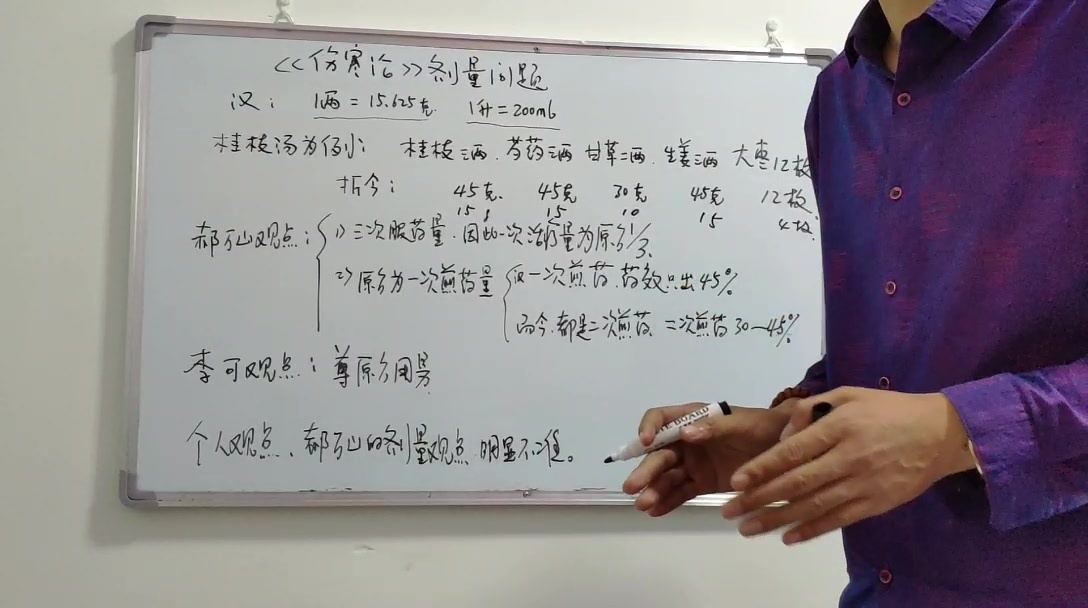 《伤寒论》剂量问题
汉： 1两=15.625克 1升=200ml
桂枝汤为例： 桂枝三两、芍药三两 甘草二两、生姜三两 大枣12枚
折今： 45克 45克 30克 45克 12枚
15 15 10 15 4枚
郝万山观点： 1) 三次服药量、因此一次治疗量为原方1/3
2) 原方为一次煎药量
仅一次煎药、药效只出45%
而今都是二次煎药 二次煎药30—45%
李可观点： 尊原方用量
个人观点、郝万山的剂量观点明显不值。
BOARD